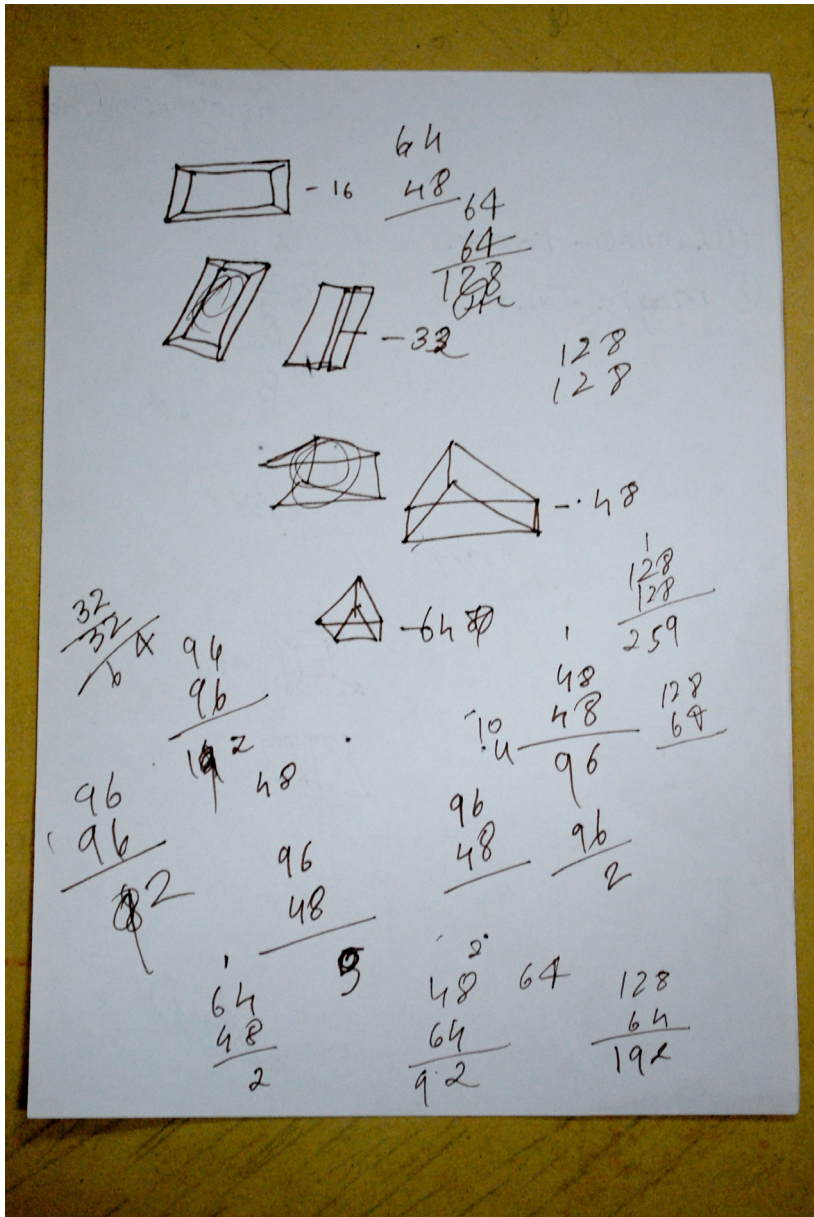 64
- 16
48
64
64
128
- 32
128
128
- 48
1
128
128
259
32
32
64
- 64
96
96
192
1
48
48
96
128
64
10
4
48
96
96
2
96
48
96
2
96
48
9
1
64
48
2
2
48
64
9 2
64
128
64
192